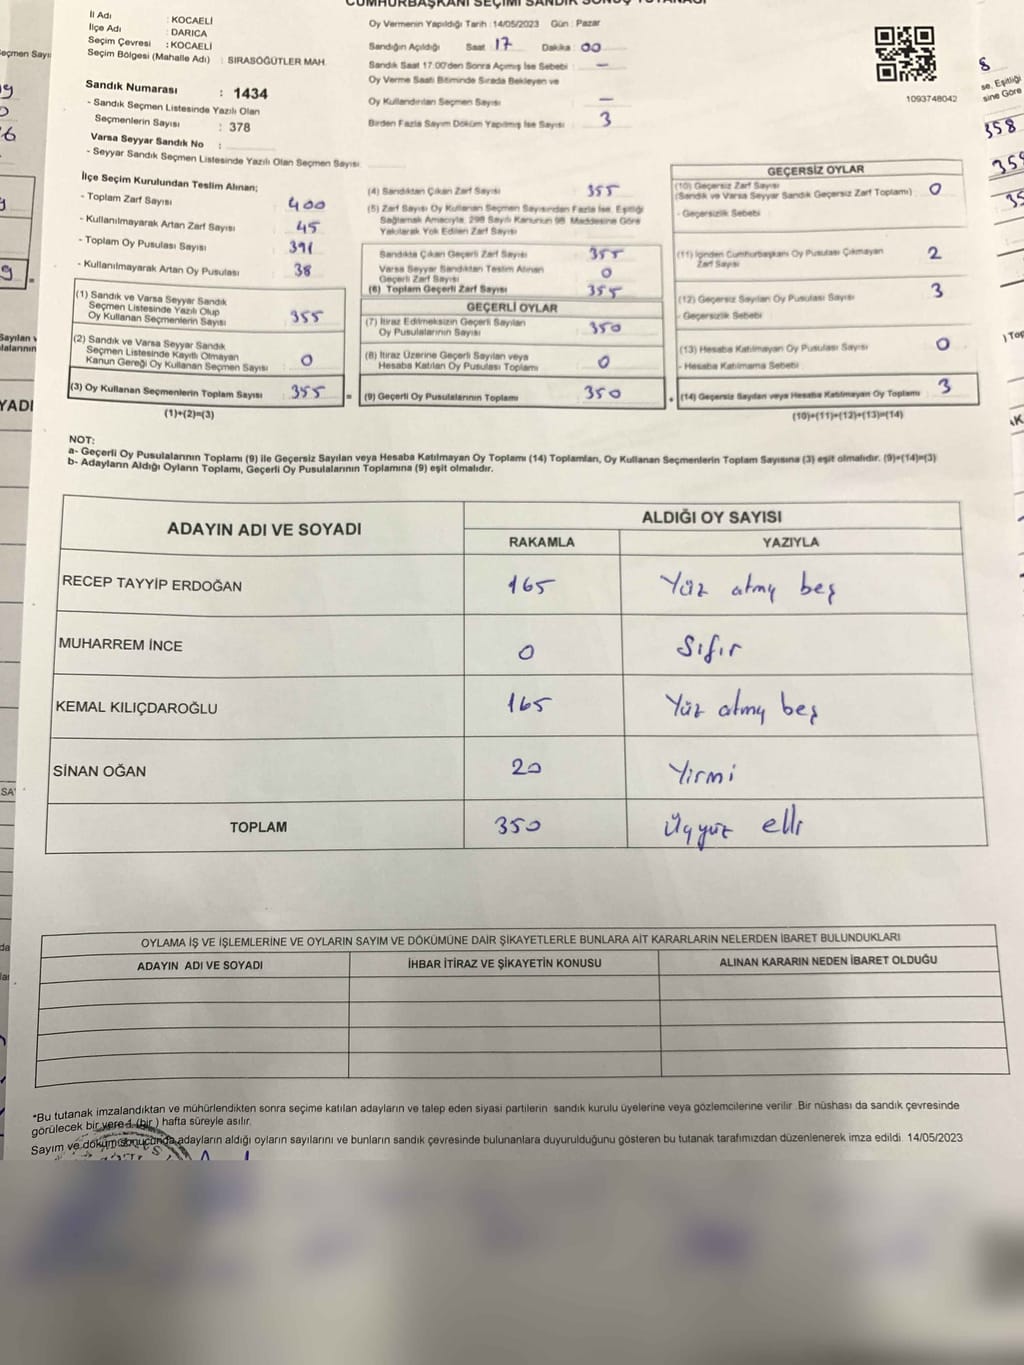 CUMHURBAŞKANI SEÇİMİ SANDIK SONUÇ TUTANAĞI
İl Adı : KOCAELİ
İlçe Adı : DARICA
Seçim Çevresi : KOCAELİ
Seçim Bölgesi (Mahalle Adı) : SIRASÖĞÜTLER MAH.
Sandık Numarası : 1434
- Sandık Seçmen Listesinde Yazılı Olan
Seçmenlerin Sayısı : 378
Varsa Seyyar Sandık No :
- Seyyar Sandık Seçmen Listesinde Yazılı Olan Seçmen Sayısı
Oy Vermenin Yapıldığı Tarih : 14/05/2023 Gün : Pazar
Sandığın Açıldığı Saat 17 Dakika 00
Sandık Saat 17:00'den Sonra Açılmış İse Sebebi : —
Oy Verme Saati Bitiminde Sırada Bekleyen ve
Oy Kullandırılan Seçmen Sayısı —
Birden Fazla Sayım Döküm Yapılmış İse Sayısı : 3
1093748042
İlçe Seçim Kurulundan Teslim Alınan;
- Toplam Zarf Sayısı 400
- Kullanılmayarak Artan Zarf Sayısı 45
- Toplam Oy Pusulası Sayısı 391
- Kullanılmayarak Artan Oy Pusulası 38
(1) Sandık ve Varsa Seyyar Sandık
Seçmen Listesinde Yazılı Olup
Oy Kullanan Seçmenlerin Sayısı 355
(2) Sandık ve Varsa Seyyar Sandık
Seçmen Listesinde Kayıtlı Olmayan
Kanun Gereği Oy Kullanan Seçmen Sayısı 0
(3) Oy Kullanan Seçmenlerin Toplam Sayısı 355
(1)+(2)=(3)
(4) Sandıktan Çıkan Zarf Sayısı 355
(5) Zarf Sayısı Oy Kullanan Seçmen Sayısından Fazla İse, Eşitliği
Sağlamak Amacıyla, 298 Sayılı Kanunun 98. Maddesine Göre
Yakılarak Yok Edilen Zarf Sayısı
Sandıkta Çıkan Geçerli Zarf Sayısı 355
Varsa Seyyar Sandıktan Teslim Alınan
Geçerli Zarf Sayısı 0
(6) Toplam Geçerli Zarf Sayısı 355
GEÇERLİ OYLAR
(7) İtiraz Edilmeksizin Geçerli Sayılan
Oy Pusulalarının Sayısı 350
(8) İtiraz Üzerine Geçerli Sayılan veya
Hesaba Katılan Oy Pusulası Toplamı 0
= (9) Geçerli Oy Pusulalarının Toplamı 350
GEÇERSİZ OYLAR
(10) Geçersiz Zarf Sayısı
(Sandık ve Varsa Seyyar Sandık Geçersiz Zarf Toplamı) 0
- Geçersizlik Sebebi
(11) İçinden Cumhurbaşkanı Oy Pusulası Çıkmayan
Zarf Sayısı 2
(12) Geçersiz Sayılan Oy Pusulası Sayısı 3
- Geçersizlik Sebebi
(13) Hesaba Katılmayan Oy Pusulası Sayısı 0
- Hesaba Katılmama Sebebi
+ (14) Geçersiz Sayılan veya Hesaba Katılmayan Oy Toplamı 3
(10)+(11)+(12)+(13)=(14)
NOT:
a- Geçerli Oy Pusulalarının Toplamı (9) ile Geçersiz Sayılan veya Hesaba Katılmayan Oy Toplamı (14) Toplamları, Oy Kullanan Seçmenlerin Toplam Sayısına (3) eşit olmalıdır. (9)+(14)=(3)
b- Adayların Aldığı Oyların Toplamı, Geçerli Oy Pusulalarının Toplamına (9) eşit olmalıdır.
ADAYIN ADI VE SOYADI
ALDIĞI OY SAYISI
RAKAMLA YAZIYLA
RECEP TAYYİP ERDOĞAN 165 Yüz atmış beş
MUHARREM İNCE 0 Sıfır
KEMAL KILIÇDAROĞLU 165 Yüz atmış beş
SİNAN OĞAN 20 Yirmi
TOPLAM 350 Üçyüz elli
OYLAMA İŞ VE İŞLEMLERİNE VE OYLARIN SAYIM VE DÖKÜMÜNE DAİR ŞİKAYETLERLE BUNLARA AİT KARARLARIN NELERDEN İBARET BULUNDUKLARI
ADAYIN ADI VE SOYADI İHBAR İTİRAZ VE ŞİKAYETİN KONUSU ALINAN KARARIN NEDEN İBARET OLDUĞU
*Bu tutanak imzalandıktan ve mühürlendikten sonra seçime katılan adayların ve talep eden siyasi partilerin sandık kurulu üyelerine veya gözlemcilerine verilir. Bir nüshası da sandık çevresinde
görülecek bir yere 1 (bir) hafta süreyle asılır.
Sayım ve döküm sonucunda adayların aldığı oyların sayılarını ve bunların sandık çevresinde bulunanlara duyurulduğunu gösteren bu tutanak tarafımızdan düzenlenerek imza edildi. 14/05/2023